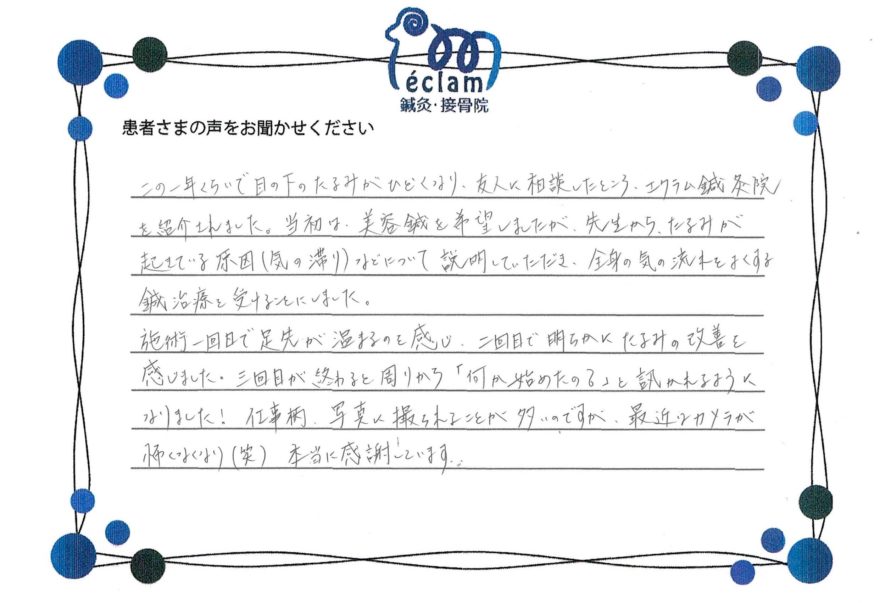 éclam
鍼灸・接骨院
患者さまの声をお聞かせください
この一年くらいで目の下のたるみがひどくなり、友人に相談したところ、エクラム鍼灸院
を紹介されました。当初は、美容鍼を希望しましたが、先生から、たるみが
起きている原因(気の滞り)などについて説明していただき、全身の気の流れをよくする
鍼治療を受けることにしました。
施術一回目で足先が温まるのを感じ、二回目で明らかにたるみの改善を
感じました。三回目が終わると周りから「何か始めたの?」と訊かれるように
なりました! 仕事柄、写真に撮られることが多いのですが、最近はカメラが
怖くなくなり(笑) 本当に感謝しています。